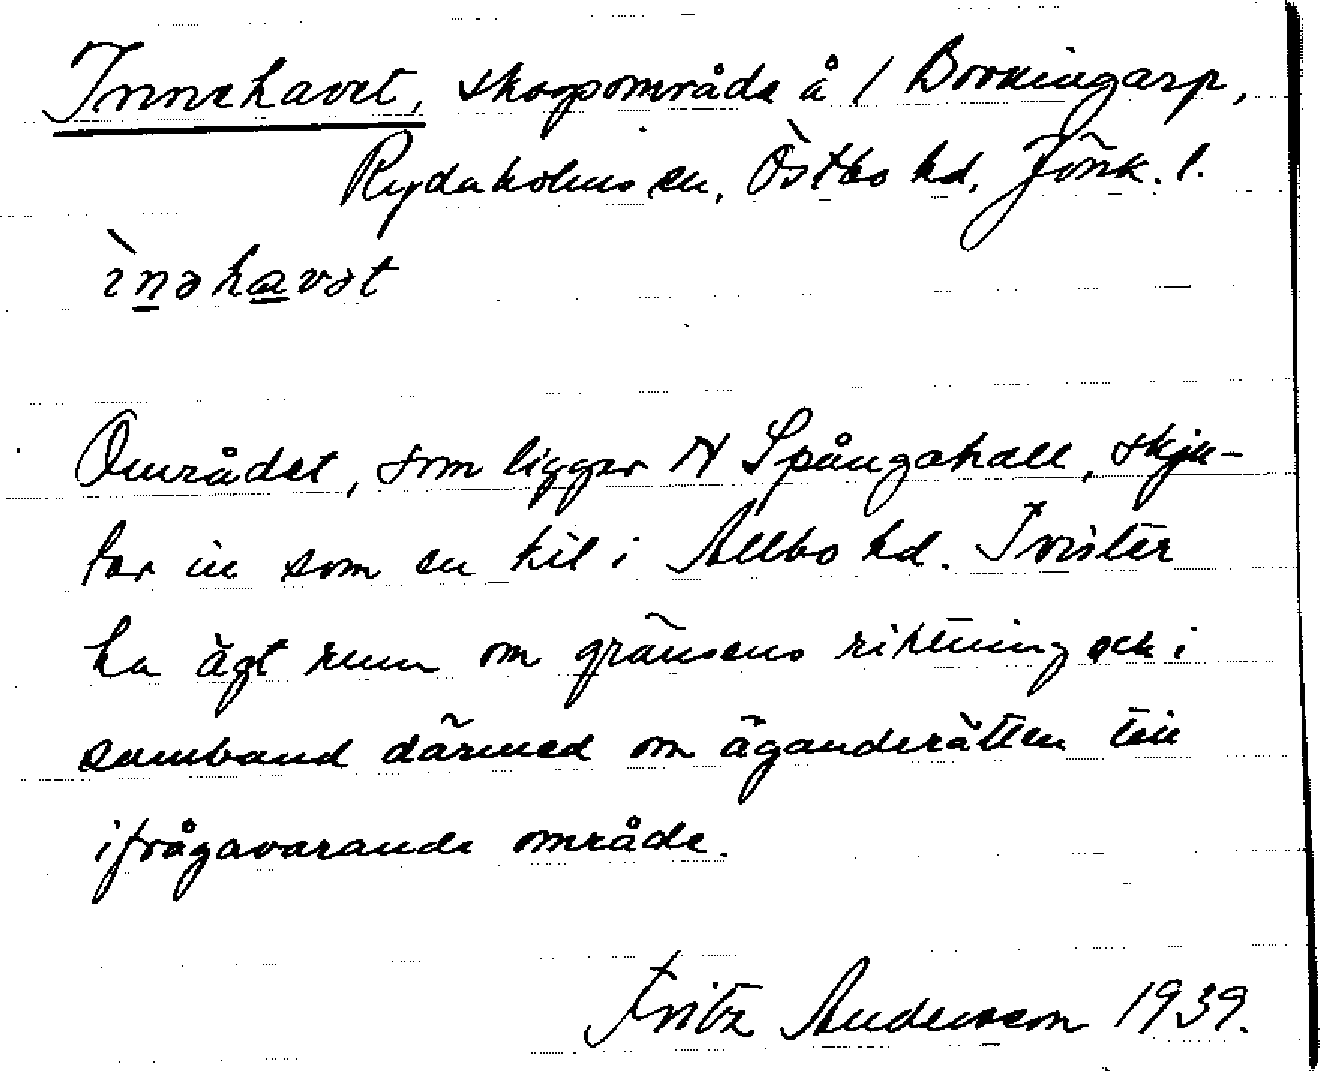 Innehavet, skogsområde å / Borringarp,
Rydaholms sn, Östbo hd, Jönk. l.
ìnəhavət
Området, som ligger N Spångahall, skju-
ter in som en kil i Allbo hd. Tvister
ha ägt rum om gränsens riktning och i
samband därmed om äganderätten till
ifrågavarande område.
Fritz Andersson 1939.